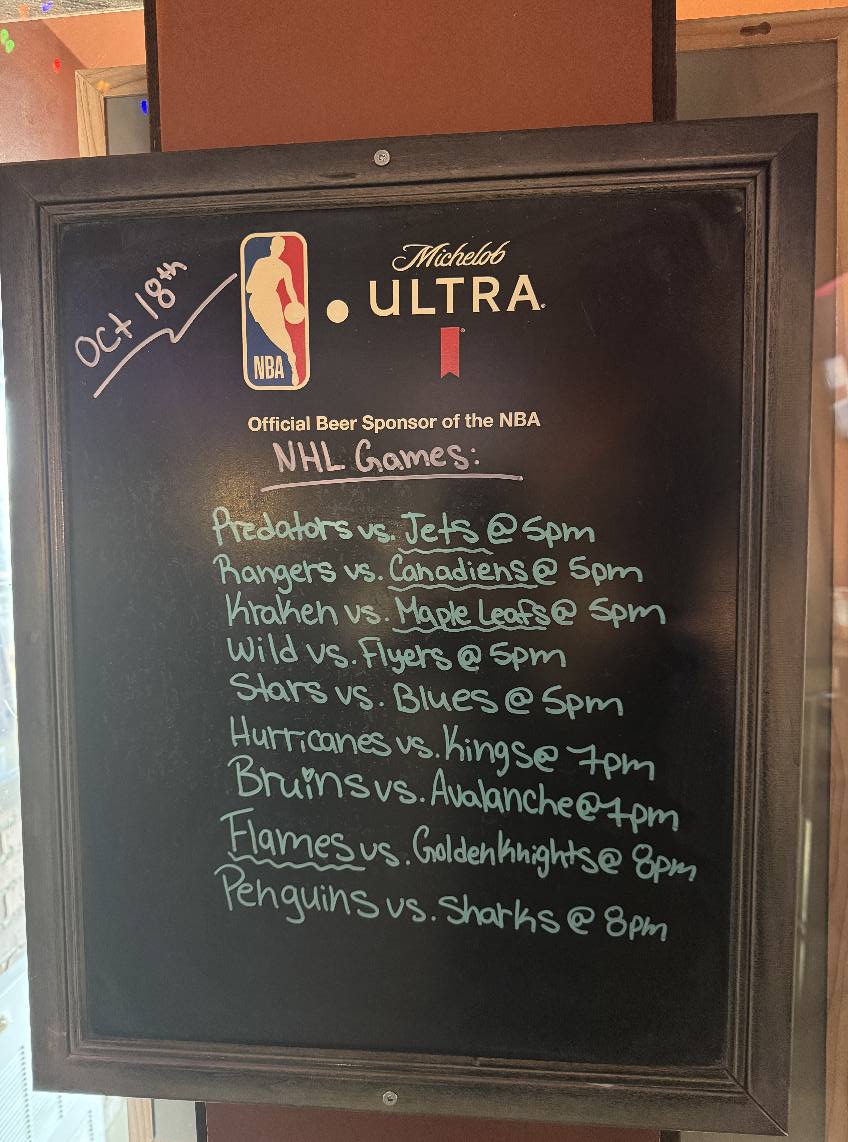 Oct 18th
NBA
Michelob
ULTRA
Official Beer Sponsor of the NBA
NHL Games:
Predators vs. Jets @ 5pm
Rangers vs. Canadiens @ 5pm
Kraken vs. Maple Leafs @ 5pm
Wild vs. Flyers @ 5pm
Stars vs. Blues @ 5pm
Hurricanes vs. Kings @ 7pm
Bruins vs. Avalanche @ 7pm
Flames vs. Golden Knights @ 8pm
Penguins vs. Sharks @ 8pm